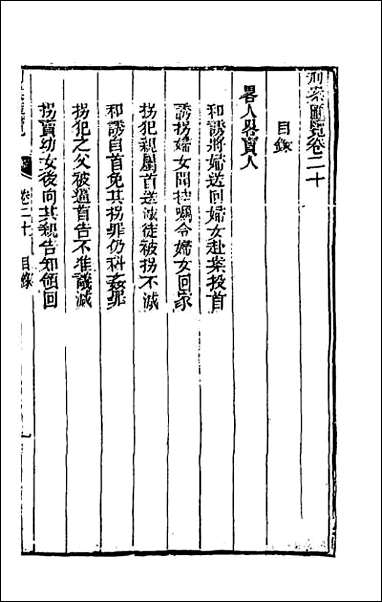 刑案匯覽卷二十
目錄
畧人畧賣人
和誘將婦送回婦女赴案投首
誘拐婦女聞控嘱令婦女回家
拐犯親屬首送減徒被拐不減
和誘自首免其拐罪仍科姦罪
拐犯之父被逼首告不准議減
拐賣幼女後向其親告知領回
卷二十 目錄